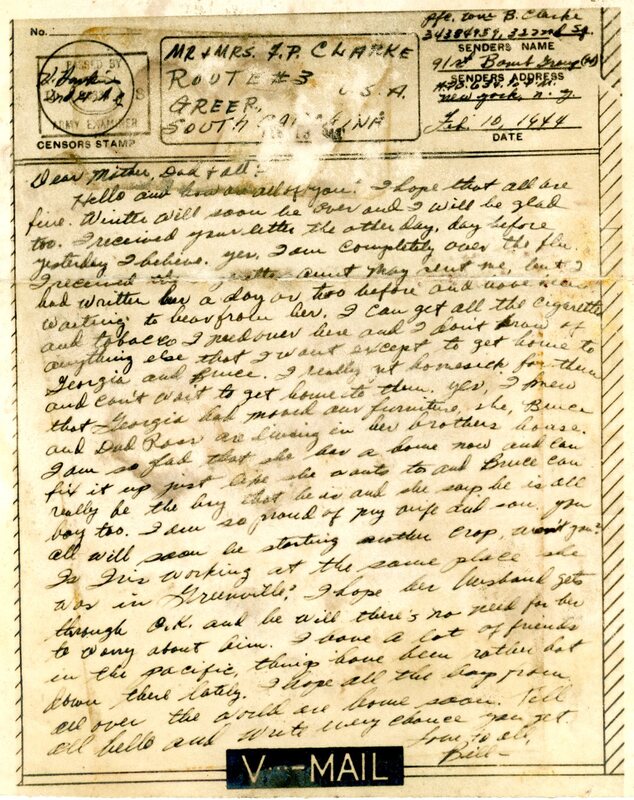 No.
PASSED BY
S
ARMY EXAMINER
CENSORS STAMP
MR & MRS. F. P. CLARKE
ROUTE #3
GREER, U.S.A.
SOUTH CAROLINA
Pfc. Wm B. Clarke
34384959, 322nd Sq.
SENDERS NAME
91st Bomb Group (H)
SENDERS ADDRESS
New York, N.Y.
Feb. 10, 1944
DATE
Dear Mother, Dad & all:
Hello and how are all of you? I hope that all are
fine. Winter will soon be over and I will be glad
too. I received your letter the other day, day before
yesterday I believe. yes, I am completely over the flu.
I received the aunt May sent me, but I
had written her a day or two before and have been
waiting to hear from her. I can get all the cigarettes
and tobacco I need over here and I don't know of
anything else that I want except to get home to
Georgia and Bruce. I really get homesick for them
and can't wait to get home to them. yes, I knew
that Georgia had moved our furniture, she, Bruce
and Dad Ross are living in her brothers house.
I am so glad that she has a home now and can
fix it up just like she wants to and Bruce can
really be the boy that he is and she says he is all
boy too. I am so proud of my wife and son. you
all will soon be starting another crop, won't you?
Is Iris working at the same place she
was in Greenville? I hope her husband gets
through O.K. and he will there's no need for her
to worry about him. I have a lot of friends
in the pacific, things have been rather hot
down there lately. I hope all the boys from
all over the world are home soon. Tell
all hello and write every chance you get.
Love to all,
Bill-
V···—MAIL